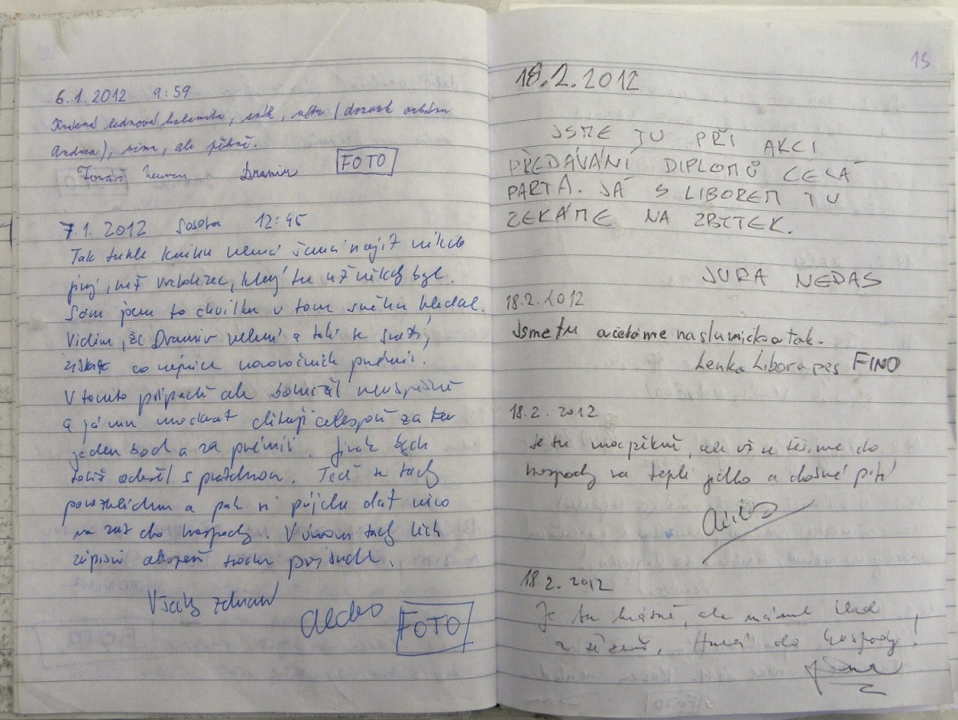 6.1.2012 9:59
Andrea), zima, ale pěkně.
Tomáš Dramin FOTO
7.1.2012 Sobota 12:45
Tak tuhle knihu nemá šanci najít nikdo
jiný, než vrcholec, který tu už někdy byl.
Sám jsem to chvilku v tom sněhu hledal.
Vidím, že Dramin a také se snaží,
co nejvíce novoročních prémií.
V tomto případě ale neúspěšně
a já mu děkuji alespoň za ten
jeden bod a za prémii. Jinak bych
odešel s prázdnou. Teď se tady
a pak si půjdu dát něco
na zub do hospody. V únoru tady těch
zápisů alespoň trochu přibude.
Všechny zdraví
FOTO
15
18.2.2012
JSME TU PŘI AKCI
PŘEDÁVÁNÍ DIPLOMŮ CELÁ
PARTA. JÁ S LIBOREM TU
ČEKÁME NA ZBYTEK.
JURA NEDAS
18.2.2012
Jsme tu a čekáme na slunicko a tak.
Lenka Libora pes FINO
18.2.2012
Je tu moc pěkně, ale už se těšíme do
hospody na teplé jídlo a dobré pití
18.2.2012
Je tu krásně, ale máme hlad
a žízeň, Hurá do hospody!